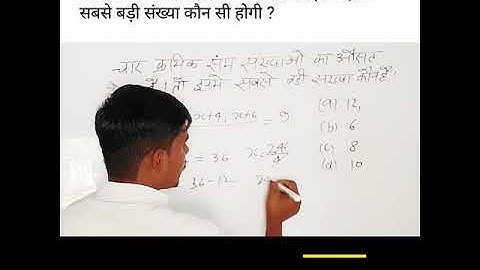 सबसे बड़ी संख्या कौन सी होगी ?
चार क्रमिक सम संख्याओ का औसत
है। तो इनमे सबसे बड़ी संख्या कौन है,
(a) 12,
x+4, x+6 = 9
(b) 6
= 36 x = 24/4
(c) 8
(d) 10
36-12